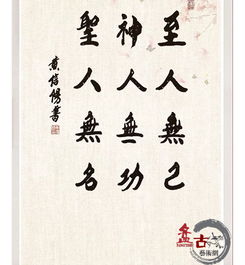 至人無己
神人無功
聖人無名
黄信陽書
盘古
藝術網